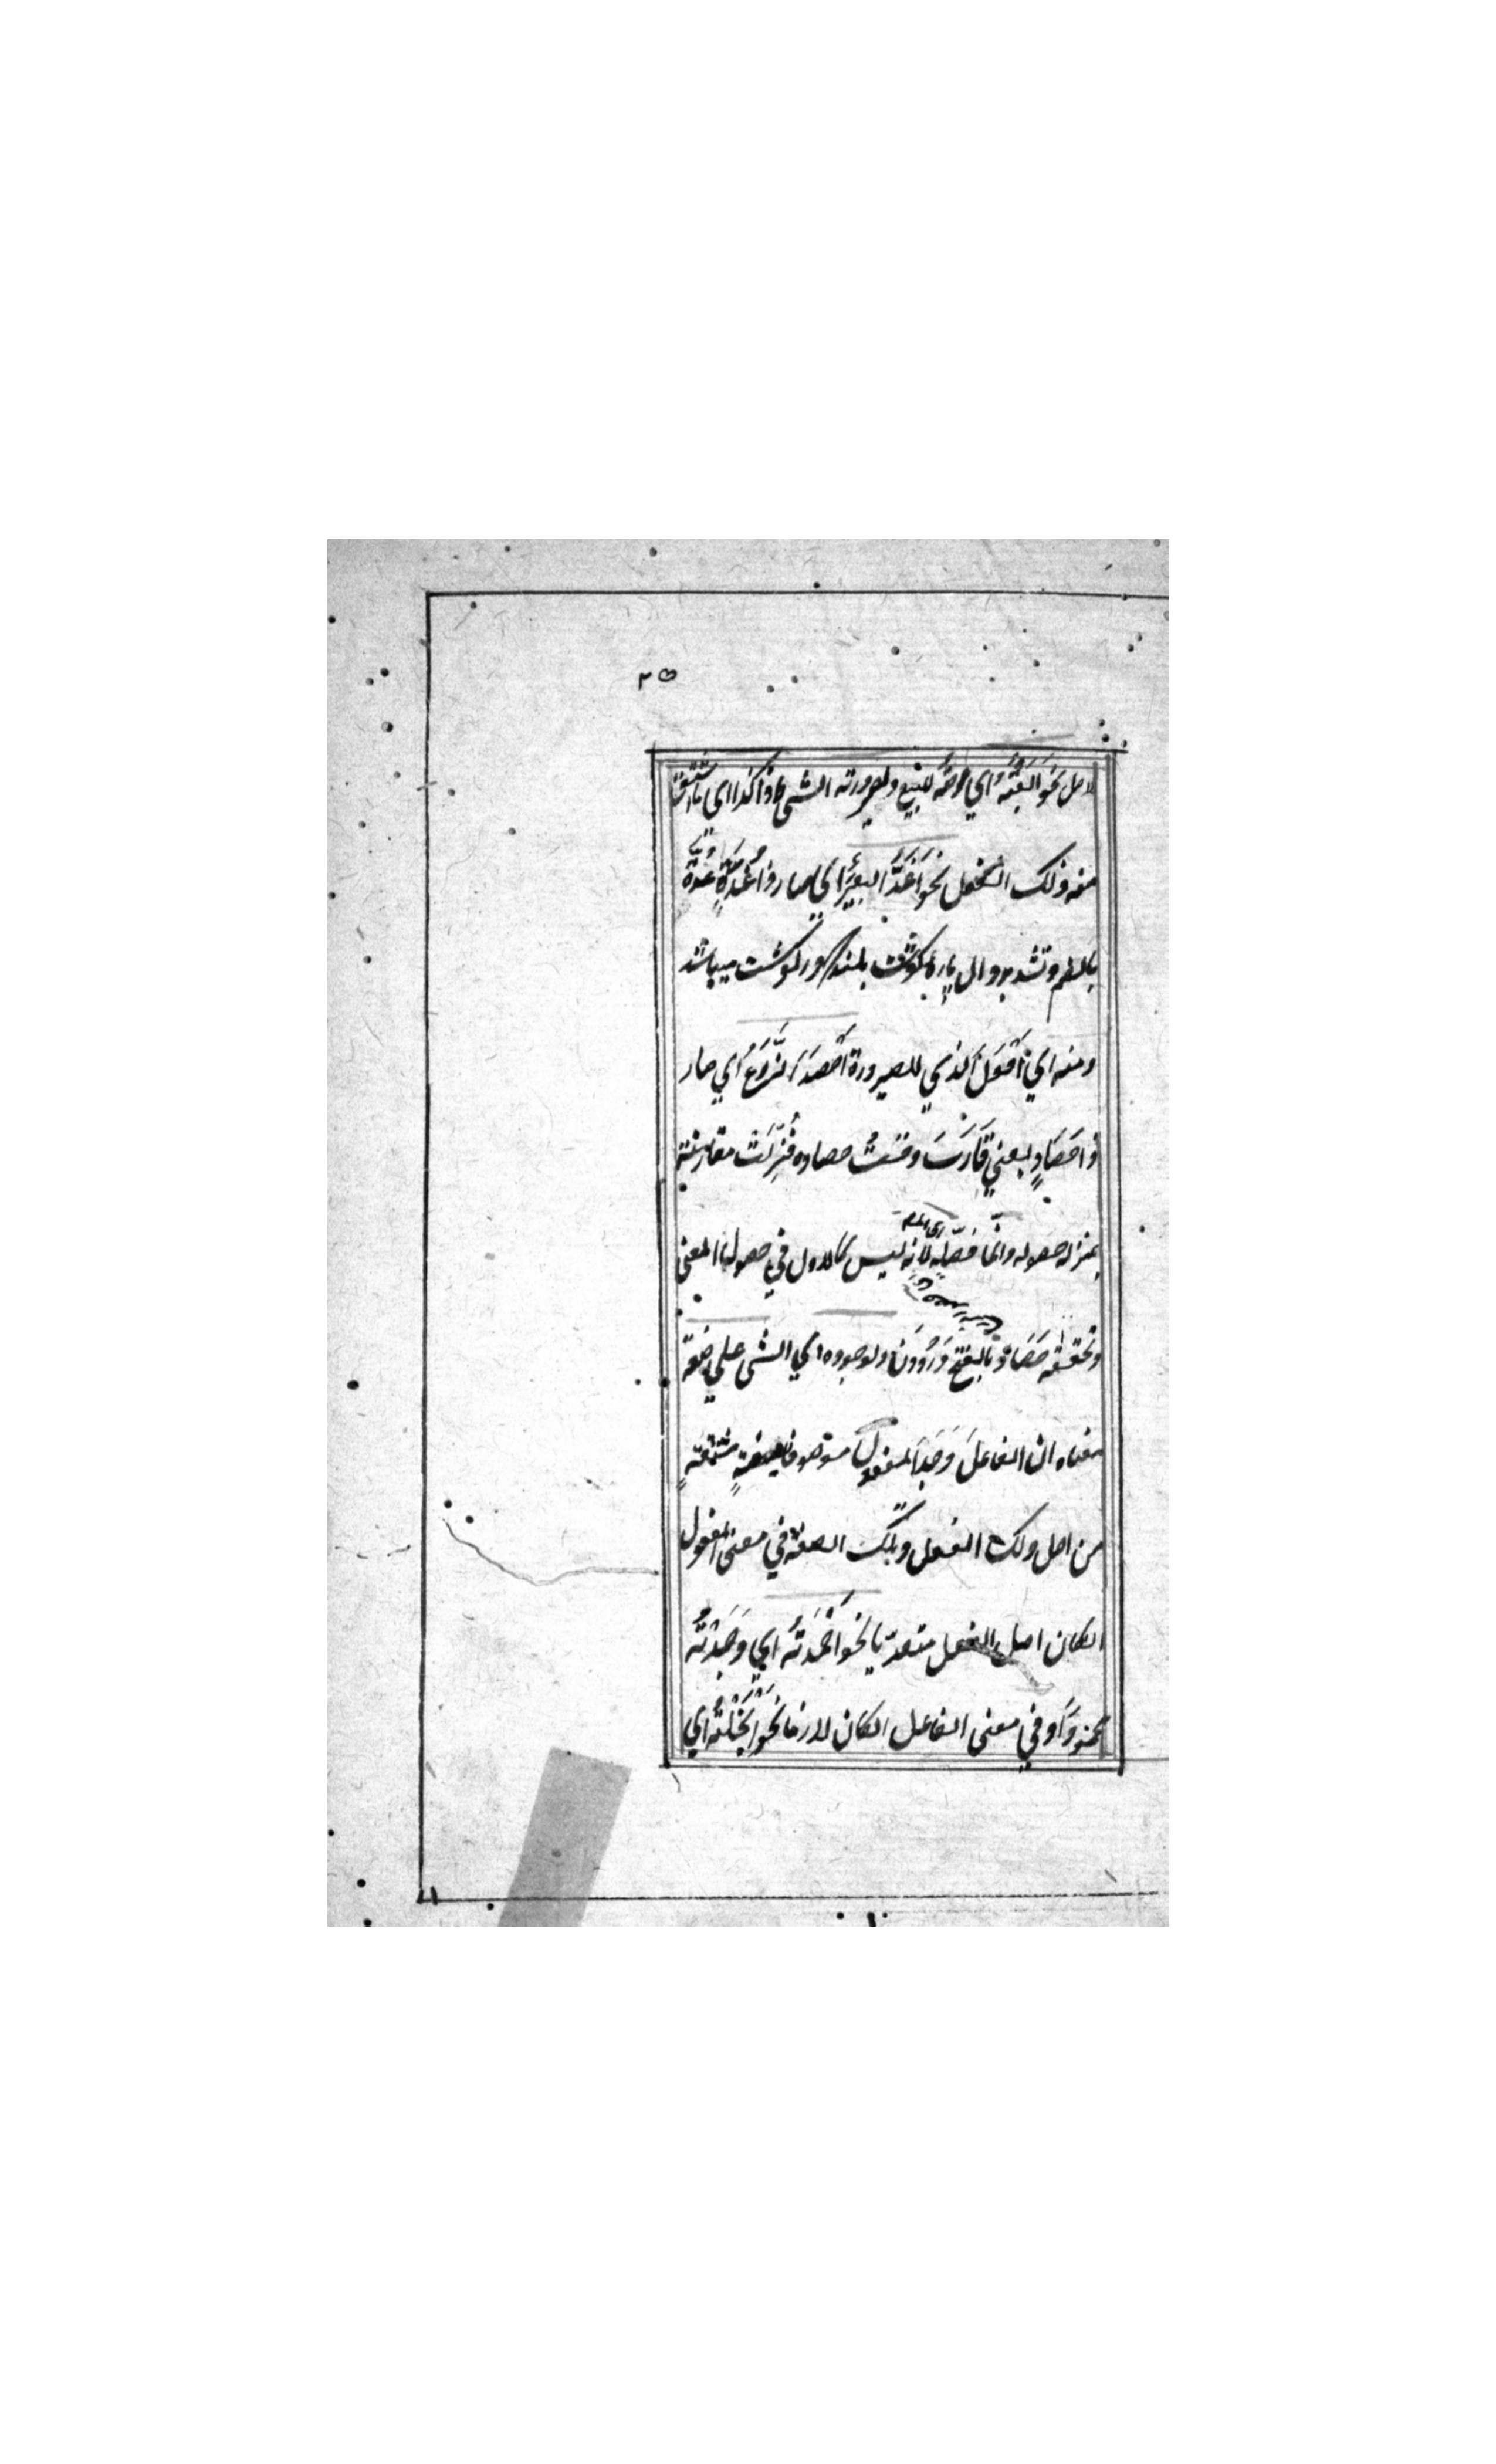 ٢٥
لاصل نحو اَبَعْتُه اي عرضته للبيع ولصيرورته الشئ ذا كذا اي ما اشتق
منه ذلك الفعل نحو اَغَدَّ البعيرُ اي صار ذا غُدّةٍ غُدّة
بالضم وتشديد دال پارهٔ گوشت بلند که در گوشت میباشد
ومنه اي اَفْعَلَ الذي للصيرورة اَحْصَدَ الزَّرْعُ اي صار
ذا حَصَادٍ بمعني قَارَبَ وقتُ حصاده فنُزِّلَتْ مقاربته
بمنزلة حصوله وانّما فَصّله لانه ليس كالاول في حصول المعنى
اي المص
وتحققه حَصَاد بالفتح دَرُودَن ولوجوده اي الشئ علي صفة
معناه ان الفاعلَ وَجَدَ المفعولَ موصوفا بصفةٍ مشتقةٍ
من اصل ذلك الفعل وتلك الصفة في معنى المفعول
انكان اصل الفعل متعدّيا نحو اَحْمَدتُه اي وَجَدْتُه
محمودًا وفي معنى الفاعل انكان لازما نحو اَبْخَلْتُه اي